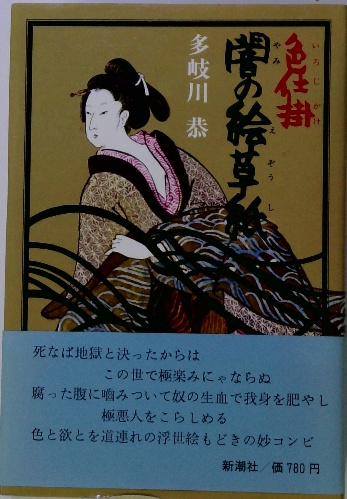 色仕掛
いろじかけ
闇の絵草紙
やみ
えぞうし
多岐川 恭
死なば地獄と決ったからは
この世で極楽みにゃならぬ
腐った腹に噛みついて奴の生血で我身を肥やし
極悪人をこらしめる
色と欲とを道連れの浮世絵もどきの妙コンビ
新潮社/価780円